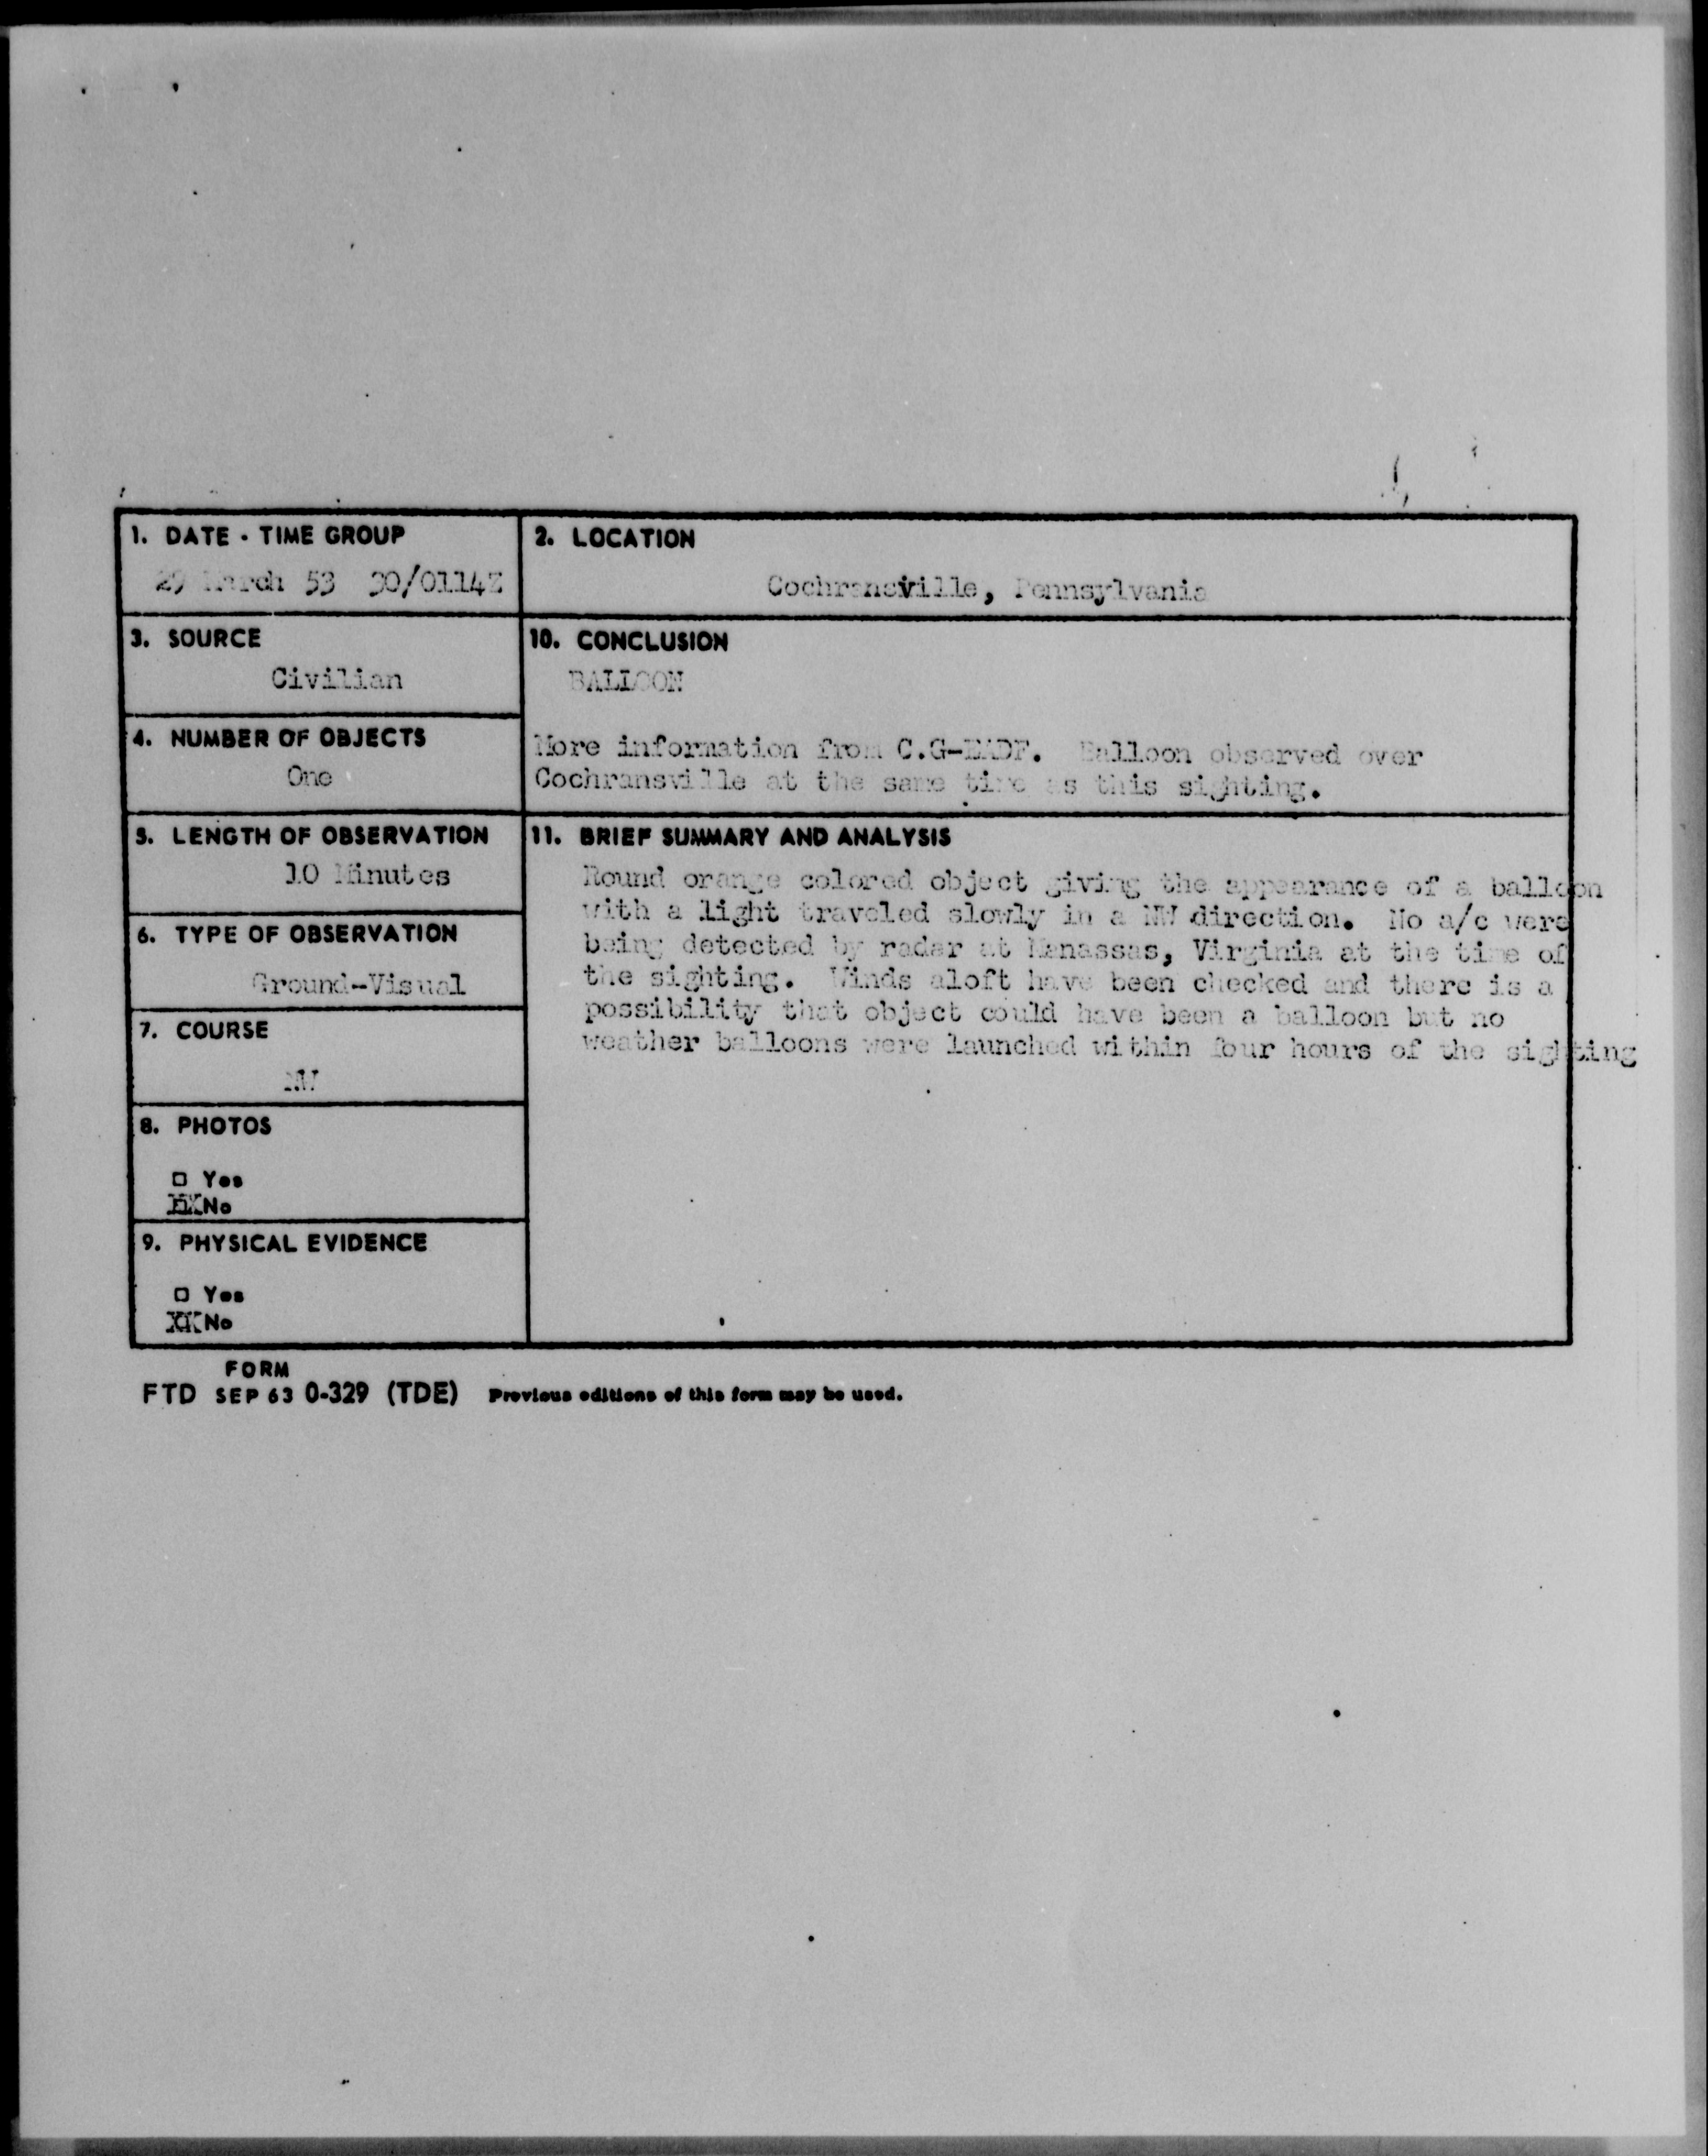 1. DATE - TIME GROUP
29 March 53 30/0114Z
2. LOCATION
Cochransville, Pennsylvania
3. SOURCE
Civilian
10. CONCLUSION
BALLOON
More information from C.G-EADF. Balloon observed over
Cochransville at the same time as this sighting.
4. NUMBER OF OBJECTS
One
5. LENGTH OF OBSERVATION
10 Minutes
11. BRIEF SUMMARY AND ANALYSIS
Round orange colored object giving the appearance of a balloon
with a light traveled slowly in a NW direction. No a/c were
being detected by radar at Manassas, Virginia at the time of
the sighting. Winds aloft have been checked and there is a
possibility that object could have been a balloon but no
weather balloons were launched within four hours of the sighting
6. TYPE OF OBSERVATION
Ground-Visual
7. COURSE
NW
8. PHOTOS
□ Yes
XX No
9. PHYSICAL EVIDENCE
□ Yes
XX No
FORM
FTD SEP 63 0-329 (TDE) Previous editions of this form may be used.